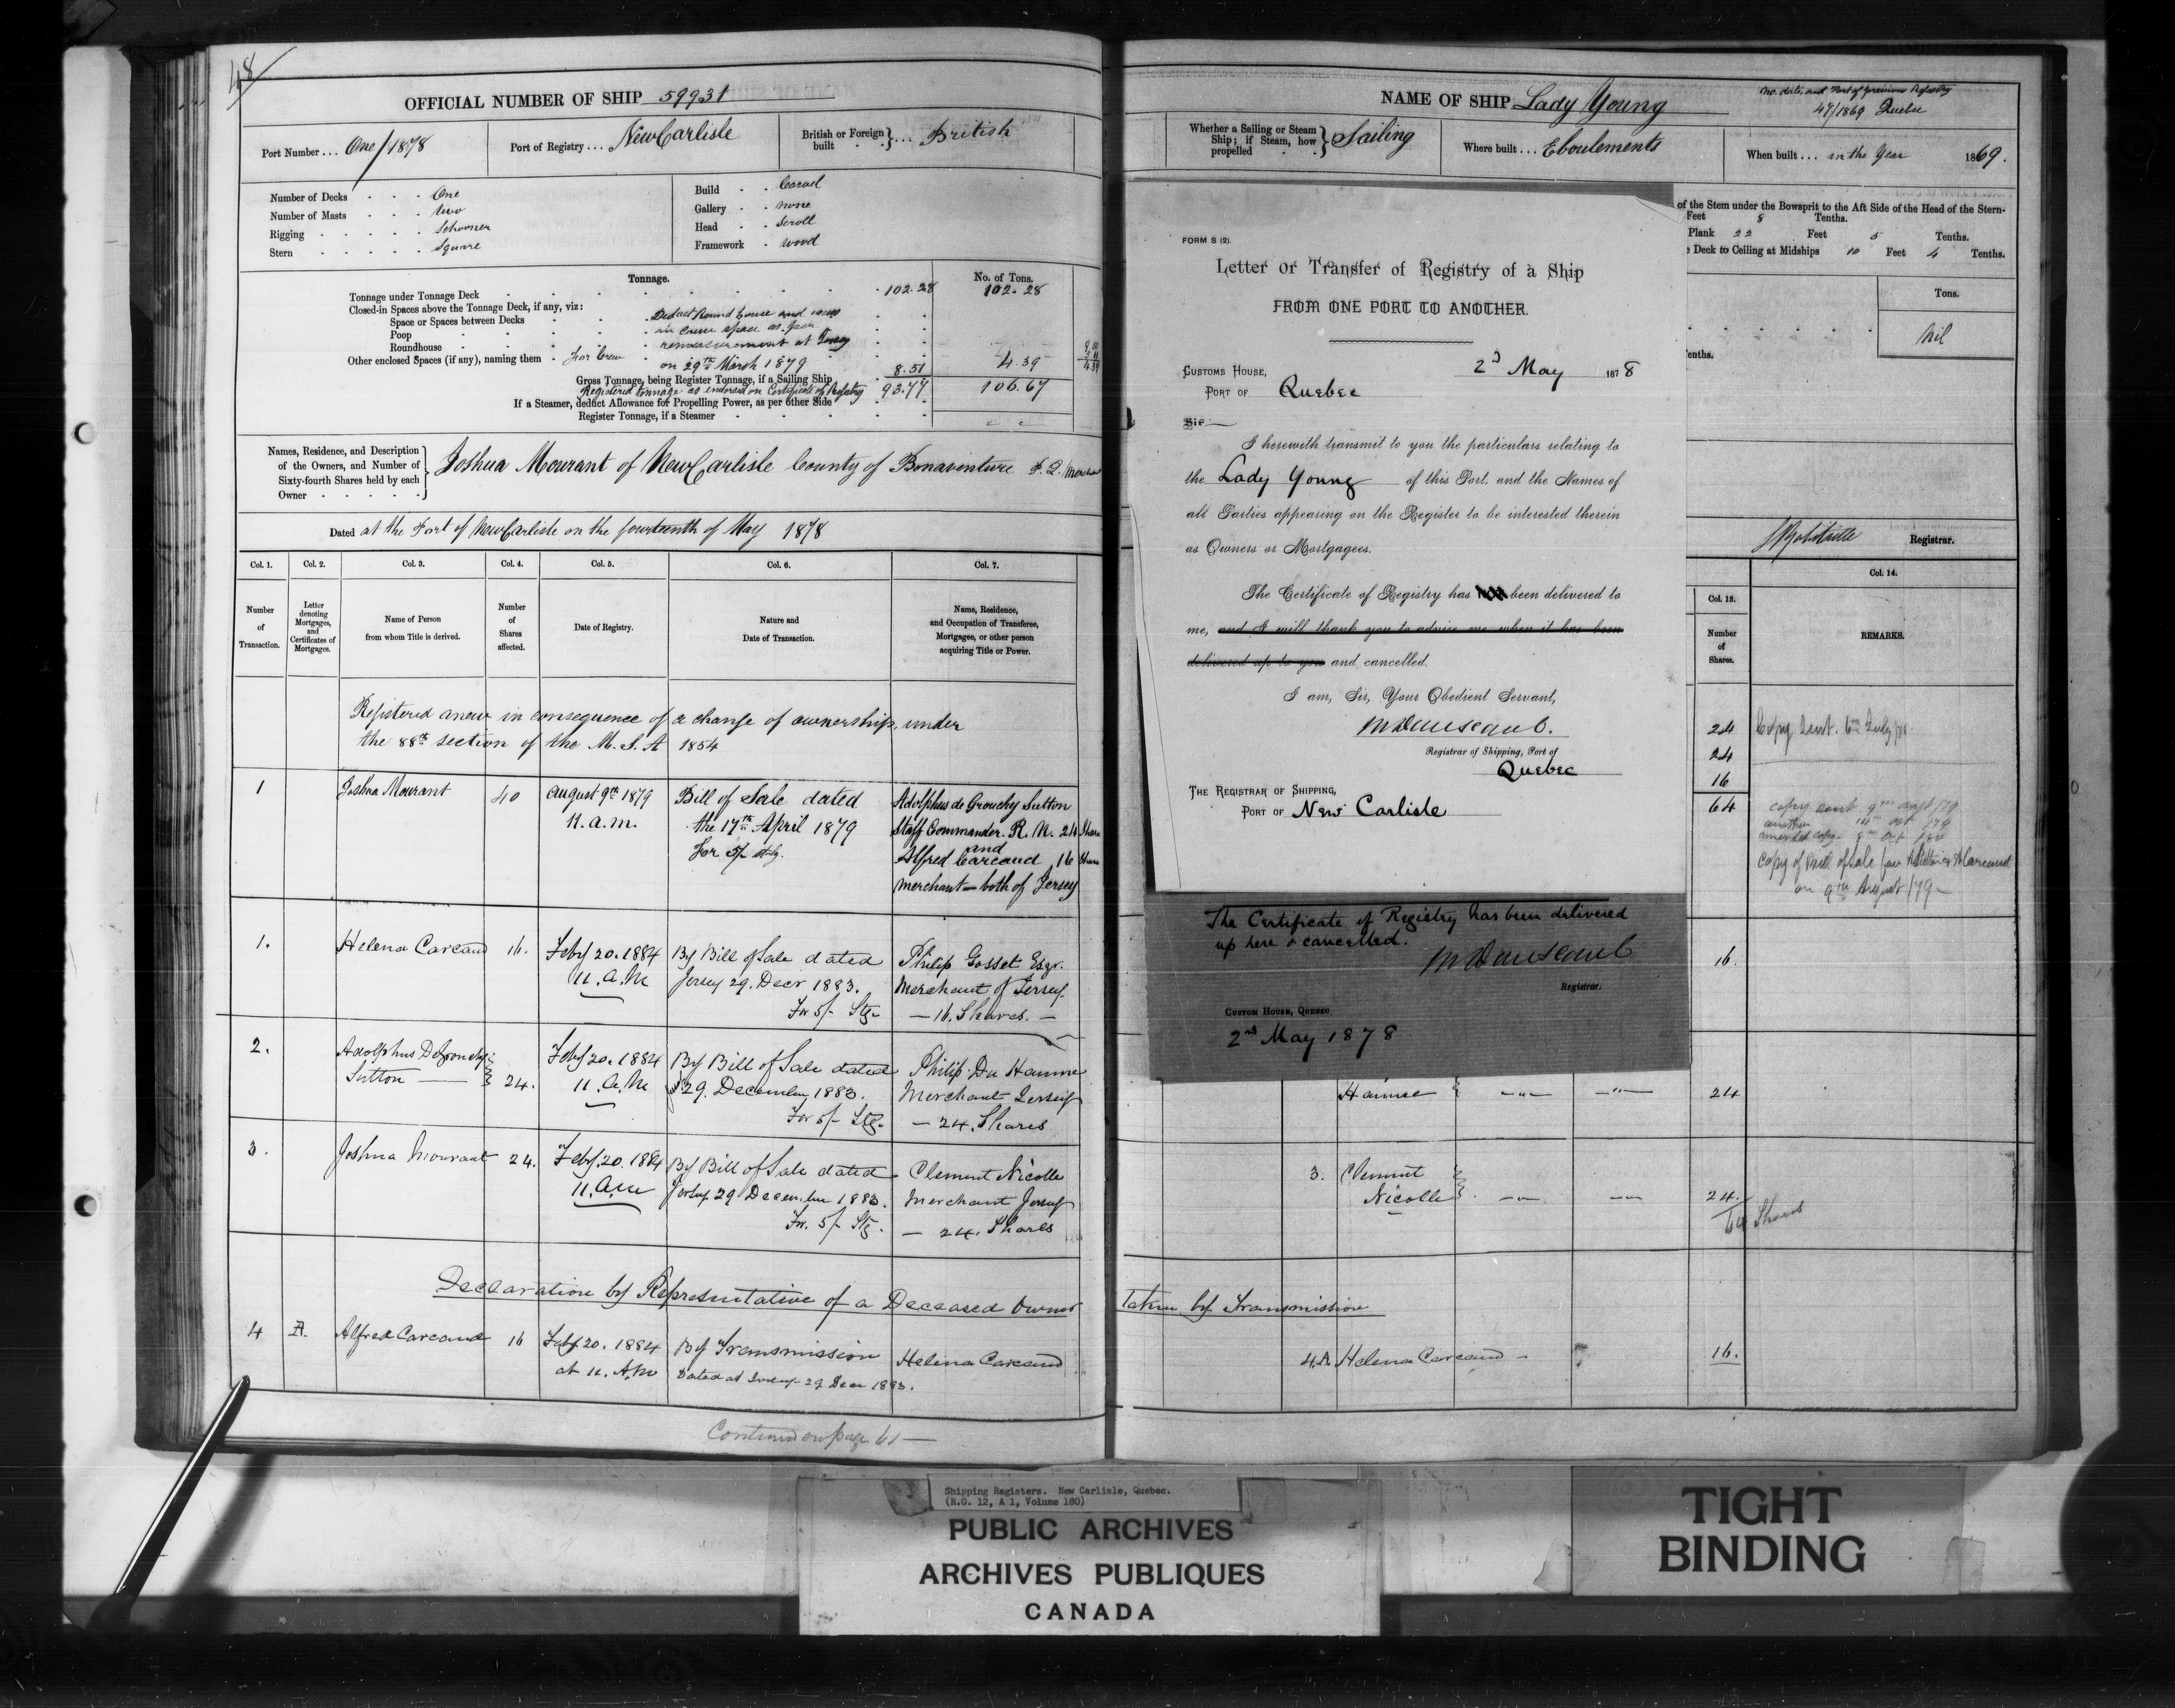 48
OFFICIAL NUMBER OF SHIP 59931
Port Number ... One/1878
Port of Registry ... New Carlisle
British or Foreign built } ... British
Number of Decks . . . One
Number of Masts . . . two
Rigging . . . . . Schooner
Stern . . . . . Square
Build . . Carvel
Gallery . . none
Head . . Scroll
Framework . wood
Tonnage.
No. of Tons.
Tonnage under Tonnage Deck 102.28 102.28
Closed-in Spaces above the Tonnage Deck, if any, viz:
Space or Spaces between Decks Deduct Round house and
Poop in crew space as per
Roundhouse remeasurement at Jersey
Other enclosed Spaces (if any), naming them For Crew on 29th March 1879 8.51 4.39
Gross Tonnage, being Register Tonnage, if a Sailing Ship
Registered Tonnage as endorsed on Certificate of Registry 93.77 106.67
If a Steamer, deduct Allowance for Propelling Power, as per other Side
Register Tonnage, if a Steamer
Names, Residence, and Description
of the Owners, and Number of
Sixty-fourth Shares held by each
Owner
Joshua Mourant of New Carlisle County of Bonaventure P.Q. Merchant
Dated at the Port of New Carlisle on the fourteenth of May 1878
Col. 1. Col. 2. Col. 3. Col. 4. Col. 5. Col. 6. Col. 7.
Number of Transaction.
Letter denoting Mortgages, and Certificates of Mortgages.
Name of Person from whom Title is derived.
Number of Shares affected.
Date of Registry.
Nature and Date of Transaction.
Name, Residence, and Occupation of Transferee, Mortgagee, or other person acquiring Title or Power.
Registered anew in consequence of a change of ownership, under
the 88th section of the M. S. A 1854
1 Joshua Mourant 40 August 9th 1879 Bill of Sale dated Adolphus de Grouchy Sutton
11. a.m. the 17th April 1879 Staff Commander. R. N. 24 Shares
For 5/- stg. and
Alfred Carcaud 16 Shares
merchant — both of Jersey
1. Helena Carcaud 16. Feby 20. 1884 By Bill of Sale dated Philip Gosset Esqr.
11. A. M Jersey 29. Decr 1883. Merchant of Jersey.
For 5/- Stg. — 16. Shares. —
2. Adolphus DeGrouchy Feby 20. 1884 By Bill of Sale dated Philip Du Haume
Sutton 24. 11. A. M 29. December 1883. Merchant Jersey
For 5/- Stg. — 24. Shares
3. Joshua Mourant 24. Feby. 20. 1884 By Bill of Sale dated Clement Nicolle
11. A.M Jersey 29 December 1883. Merchant Jersey
For. 5/- Stg. — 24. Shares
Declaration by Representative of a Deceased Owner
4 A. Alfred Carcaud 16 Feby 20. 1884 By Transmission Helena Carcaud
at 11. A.M Dated at Jersey 29 Decr 1883.
Continued on page 61 —
NAME OF SHIP Lady Young
No. date, and Port of previous Registry
47/1869 Quebec
Whether a Sailing or Steam
Ship; if Steam, how
propelled } Sailing
Where built ... Eboulements
When built ... in the Year 1869.
of the Stem under the Bowsprit to the Aft Side of the Head of the Stern-
Feet 8 Tenths.
Plank 22 Feet 5 Tenths.
Deck to Ceiling at Midships 10 Feet 4 Tenths.
Tons.
Nil
Tenths.
Registrar.
Col. 13. Col. 14.
Number of Shares.
REMARKS.
24
24
16
64
copy sent 9th augt /79
amended copy
Copy of Bill of Sale
on 9th August /79 —
16.
Haume 24
3. Clement
Nicolle 24.
64 Shares
taken by Transmission
4.A Helena Carcaud 16.
FORM S (2).
Letter or Transfer of Registry of a Ship
FROM ONE PORT TO ANOTHER.
2d May 1878
CUSTOMS HOUSE,
PORT OF Quebec
Sir
I herewith transmit to you the particulars relating to
the Lady Young of this Port, and the Names of
all Parties appearing on the Register to be interested therein
as Owners or Mortgagees.
The Certificate of Registry has been delivered to
me, and I will thank you to advise me when it has been
delivered up to you and cancelled.
I am, Sir, Your Obedient Servant,
Registrar of Shipping, Port of
Quebec
THE REGISTRAR OF SHIPPING,
PORT OF New Carlisle
The Certificate of Registry has been delivered
up here & cancelled.
Registrar.
CUSTOM HOUSE, QUEBEC
2nd May 1878
Shipping Registers. New Carlisle, Quebec.
(R.G. 12, A 1, Volume 180)
PUBLIC ARCHIVES
ARCHIVES PUBLIQUES
CANADA
TIGHT
BINDING